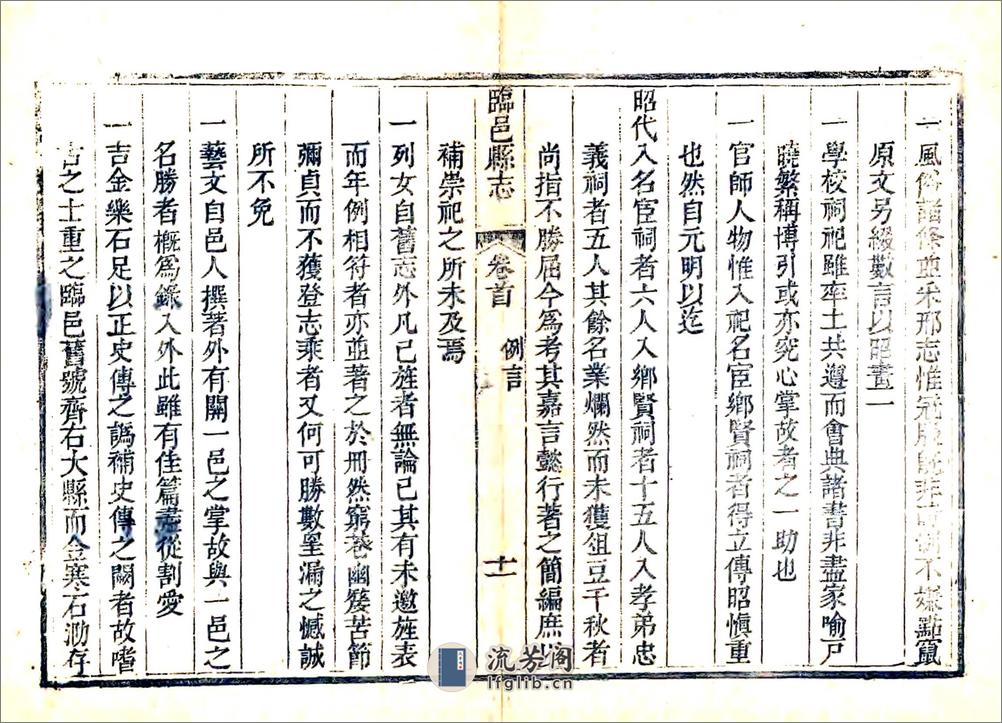 一風俗諸條並采邢志惟冠服既非時制不嫌點竄
原文另綴數言以昭畫一
一學校祠祀雖率土共遵而會典諸書非盡家喻戸
曉繁稱博引或亦究心掌故者之一助也
一官師人物惟入祀名宦鄉賢祠者得立傳昭慎重
也然自元明以迄
昭代入名宦祠者六人入鄉賢祠者十五人入孝弟忠
義祠者五人其餘名業爛然而未獲俎豆千秋者
尚指不勝屈今爲考其嘉言懿行著之簡編庶以
補崇祀之所未及焉
臨邑縣志
卷首
例言
十一
一列女自舊志外凡已旌者無論已其有未邀旌表
而年例相符者亦並著之於冊然窮巷幽嫠苦節
彌貞而不獲登志乘者又何可勝數罣漏之憾誠
所不免
一藝文自邑人撰著外有關一邑之掌故與一邑之
名勝者概爲錄入外此雖有佳篇盡從割愛
一吉金樂石足以正史傳之譌補史傳之闕者故嗜
古之士重之臨邑舊號齊右大縣而金寒石泐存
流芳阁
lfglib.cn